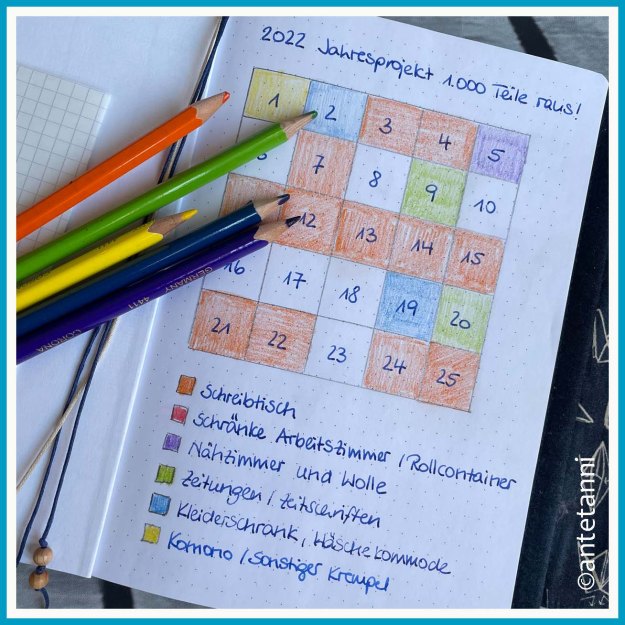 2022 Jahresprojekt 1.000 Teile raus!
1 2 3 4 5
7 8 9 10
12 13 14 15
16 17 18 19 20
21 22 23 24 25
Schreibtisch
Schränke Arbeitszimmer / Rollcontainer
Nähzimmer und Wolle
Zeitungen / Zeitschriften
Kleiderschrank, Wäschekommode
Komono / Sonstiger Krempel
CORONA 4411 GERMANY
©antetanni